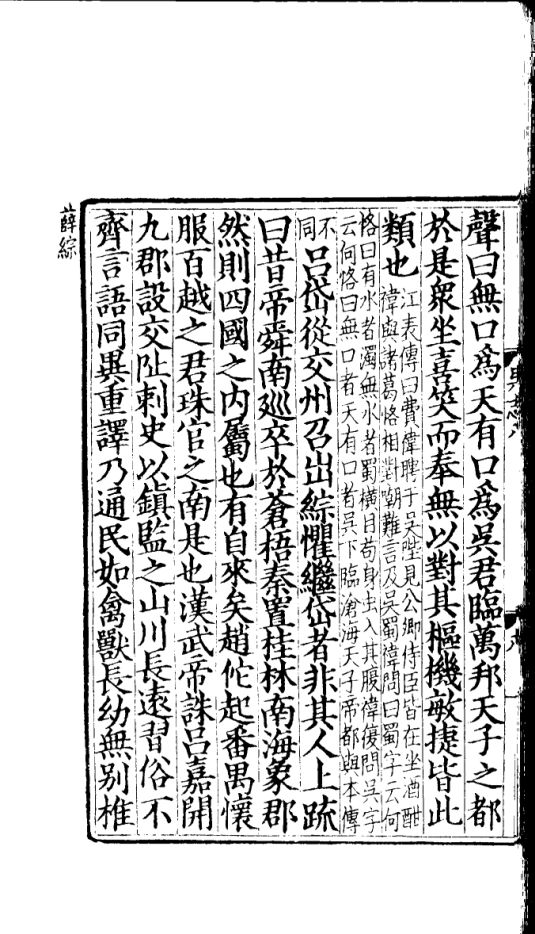 吳志八
八
聲曰無口爲天有口爲吳君臨萬邦天子之都
於是衆坐喜笑而奉無以對其樞機敏捷皆此
類也
江表傳曰費禕聘于吳陛見公卿侍臣皆在坐酒酣
禕與諸葛恪相對嘲難言及吳蜀禕問曰蜀字云何
恪曰有水者濁無水者蜀橫目苟身虫入其腹禕復問吳字
云何恪曰無口者天有口者吳下臨滄海天子帝都與本傳
不同
呂岱從交州召出綜懼繼岱者非其人上疏
曰昔帝舜南廵卒於蒼梧秦置桂林南海象郡
然則四國之内屬也有自來矣趙佗起番禺懷
服百越之君珠官之南是也漢武帝誅呂嘉開
九郡設交阯刺史以鎮監之山川長遠習俗不
齊言語同異重譯乃通民如禽獸長幼無别椎
薛綜